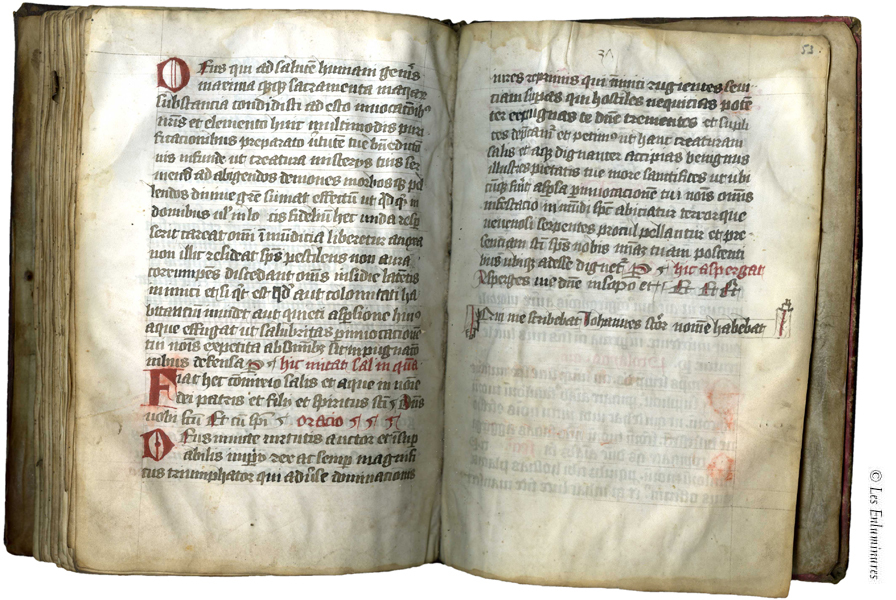 Deus qui ad salutem humani generis
maxima queque sacramenta in aquarum
substantia condidisti ad esto invocationibus
nostris et elemento huic multimodis puri
ficationibus preparato virtutem tue benedictio
nis infunde ut creatura misteriis tuis ser
viens ad abigendos demones morbosque pel
lendos divine gratie sumat effectum ut quidquid in
domibus vel in locis fidelium hec unda resp
serit careat omni inmundicia liberetur a noxa
non illic resideat spiritus pestilens non aura
corrumpens discedant omnes insidie latentis
inimici et si quid est quod aut incolomitati ha
bitantium invidet aut quieti aspersione huius
aque effugiat ut salubritas per invocacionem
tui nominis expetita ab omnibus sit impugnatio
nibus defensa hic mittat sal in aqua
Fiat hec commixtio salis et aque in nomine
dei patris et filii et spiritus sancti Dominus
vobiscum Et cum spiritu oracio
Deus invicte virtutis auctor et insup
abilis imperii rex ac semper magnifi
cus triumphator qui adverse dominationis
31
53
vires reprimis qui inimici rugientis sevi
ciam superas qui hostiles nequicias poten
ter expugnas te domine trementes et suppli
ces deprecamur et petimus ut hanc creaturam
salis et aque dignanter accipias benignus
illustres pietatis tue more sanctifices ut ubi
cumque fuerit aspersa per invocationem tui nominis omnis
infestacio inmundi spiritus abiciatur terrorque
venenosi serpentis procul pellantur et pre
sentiam sancti spiritus nobis misericordiam tuam poscenti
bus ubique adesse dignetur hic aspergat
Asperges me domine insopo et
Qui me scribebat Johannes scriptor nomen habebat
© Les Enluminures